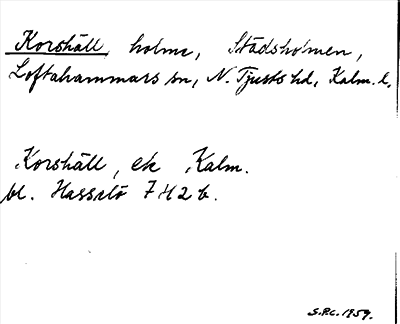 Korshäll, holme, Städsholmen,
Loftahammars sn, N. Tjusts hd, Kalm. l.
Korshäll, ek Kalm.
bl. Hasselö 7H2b.
S.P.C. 1959.